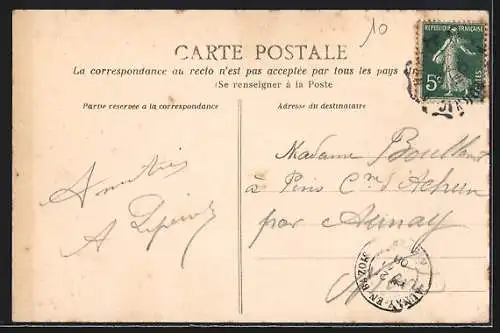 10
RÉPUBLIQUE FRANÇAISE
5c
POSTES
CARTE POSTALE
La correspondance au recto n'est pas acceptée par tous les pays
(Se renseigner à la Poste
Partie réservée à la correspondance
Adresse du destinataire
Amitiés
A
Madame
à Pins Cne d'Achun
par Aunay
AUNAY-EN-BAZOIS